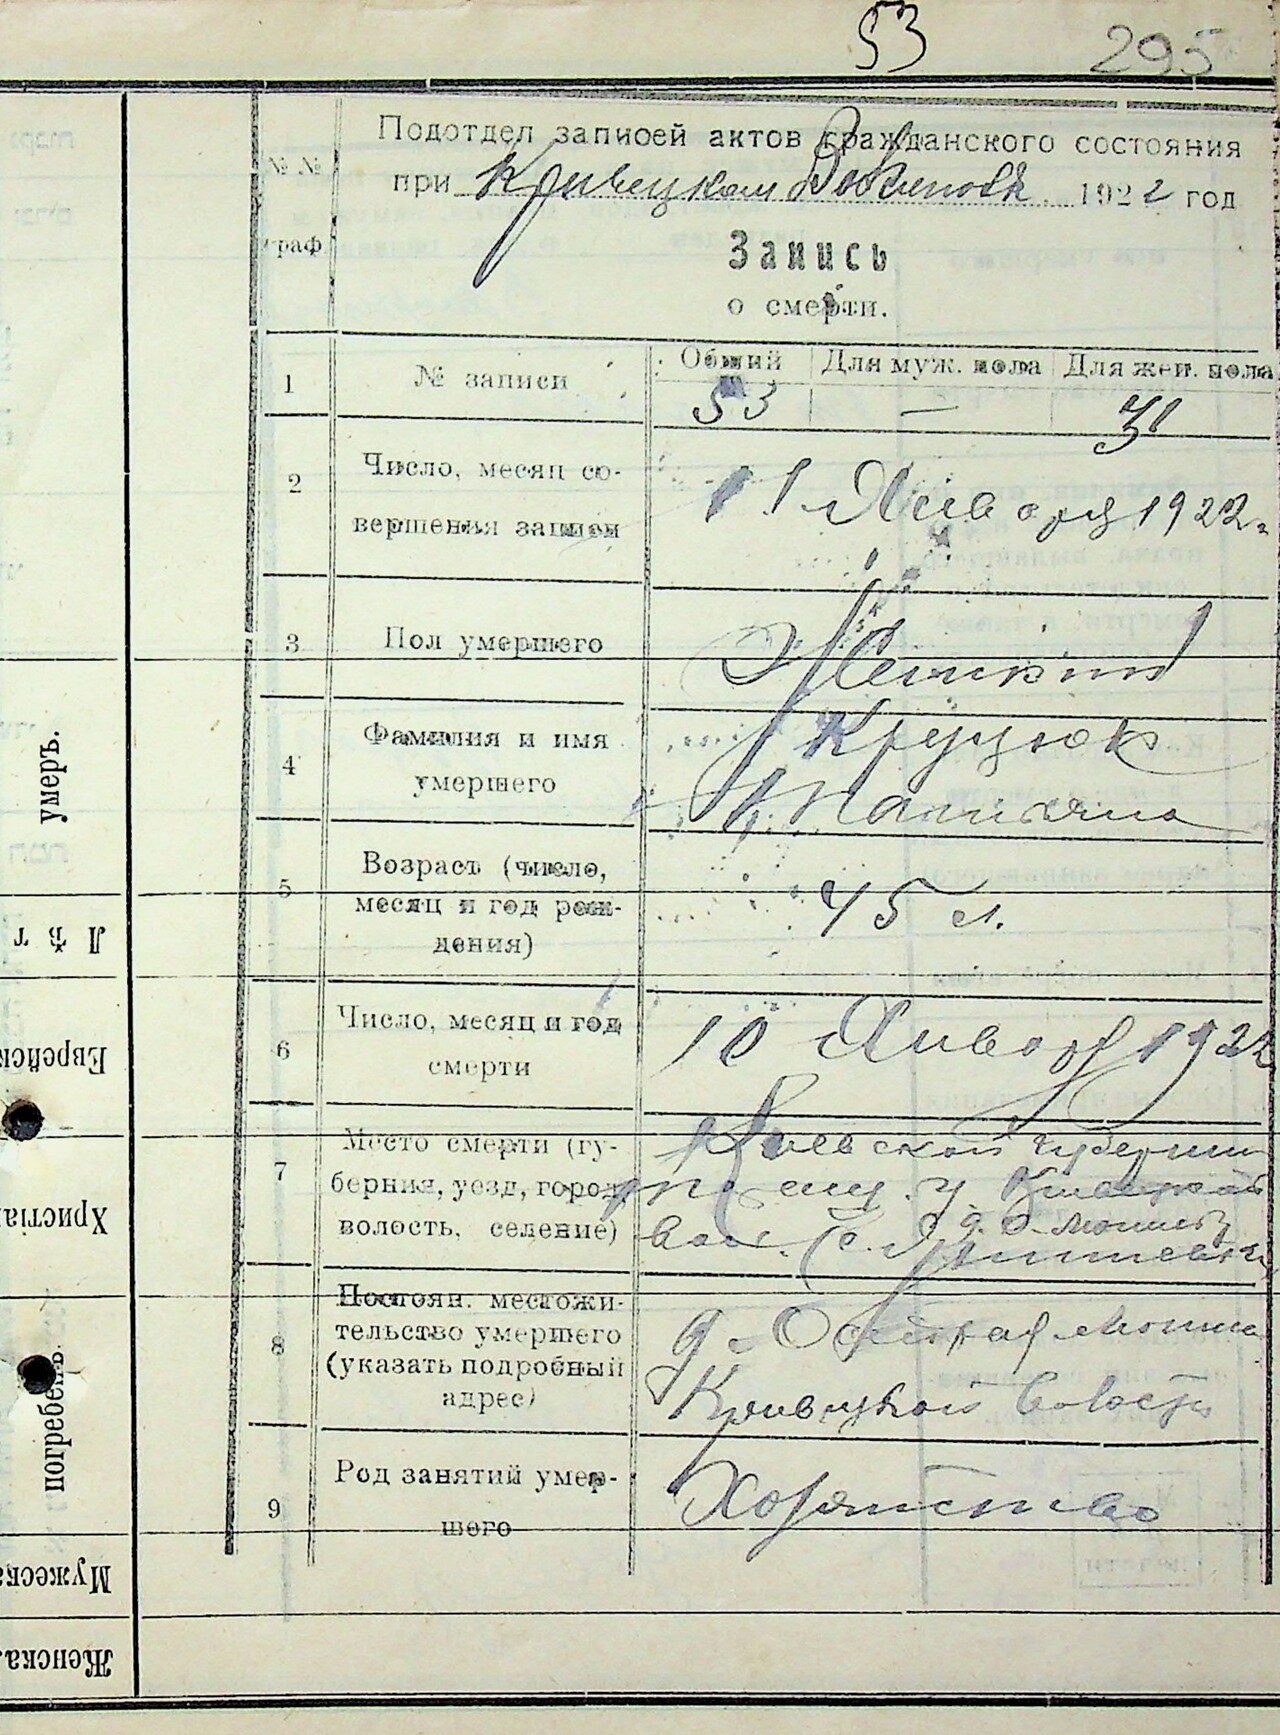 53
295
Подотдел записей актов гражданского состояния
№ №
граф
при Кривецком 1922 год
Запись
о смерти.
1
№ записи
Общий
Для муж. пола
Для жен. пола
53
—
31
2
Число, месяц со-
вершения записи
11 Января 1922 г.
3
Пол умершего
Женский
4
Фамилия и имя
умершего
Круцюк
Татияна
5
Возраст (число,
месяц и год рож-
дения)
45 л.
6
Число, месяц и год
смерти
10 Января 1922
7
Место смерти (гу-
берния, уезд, город,
волость, селение)
Киевской Губернии
у. Кривецкой
вол.
8
Постоян. местожи-
тельство умершего
(указать подробный
адрес)
д. Острая Могила
Кривецкой Волости
9
Род занятий умер-
шего
Хозяйство
умеръ.
Лѣт
Еврейск
Христіа
погребенъ.
Мужеска
Женска